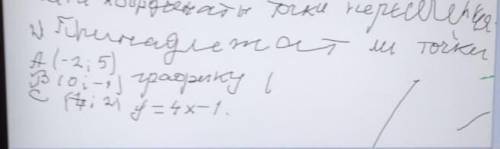 координаты точки пересечения
Принадлежат ли точки
A (-2; 5)
B (0; -1) графику (
C y = 4x-1.